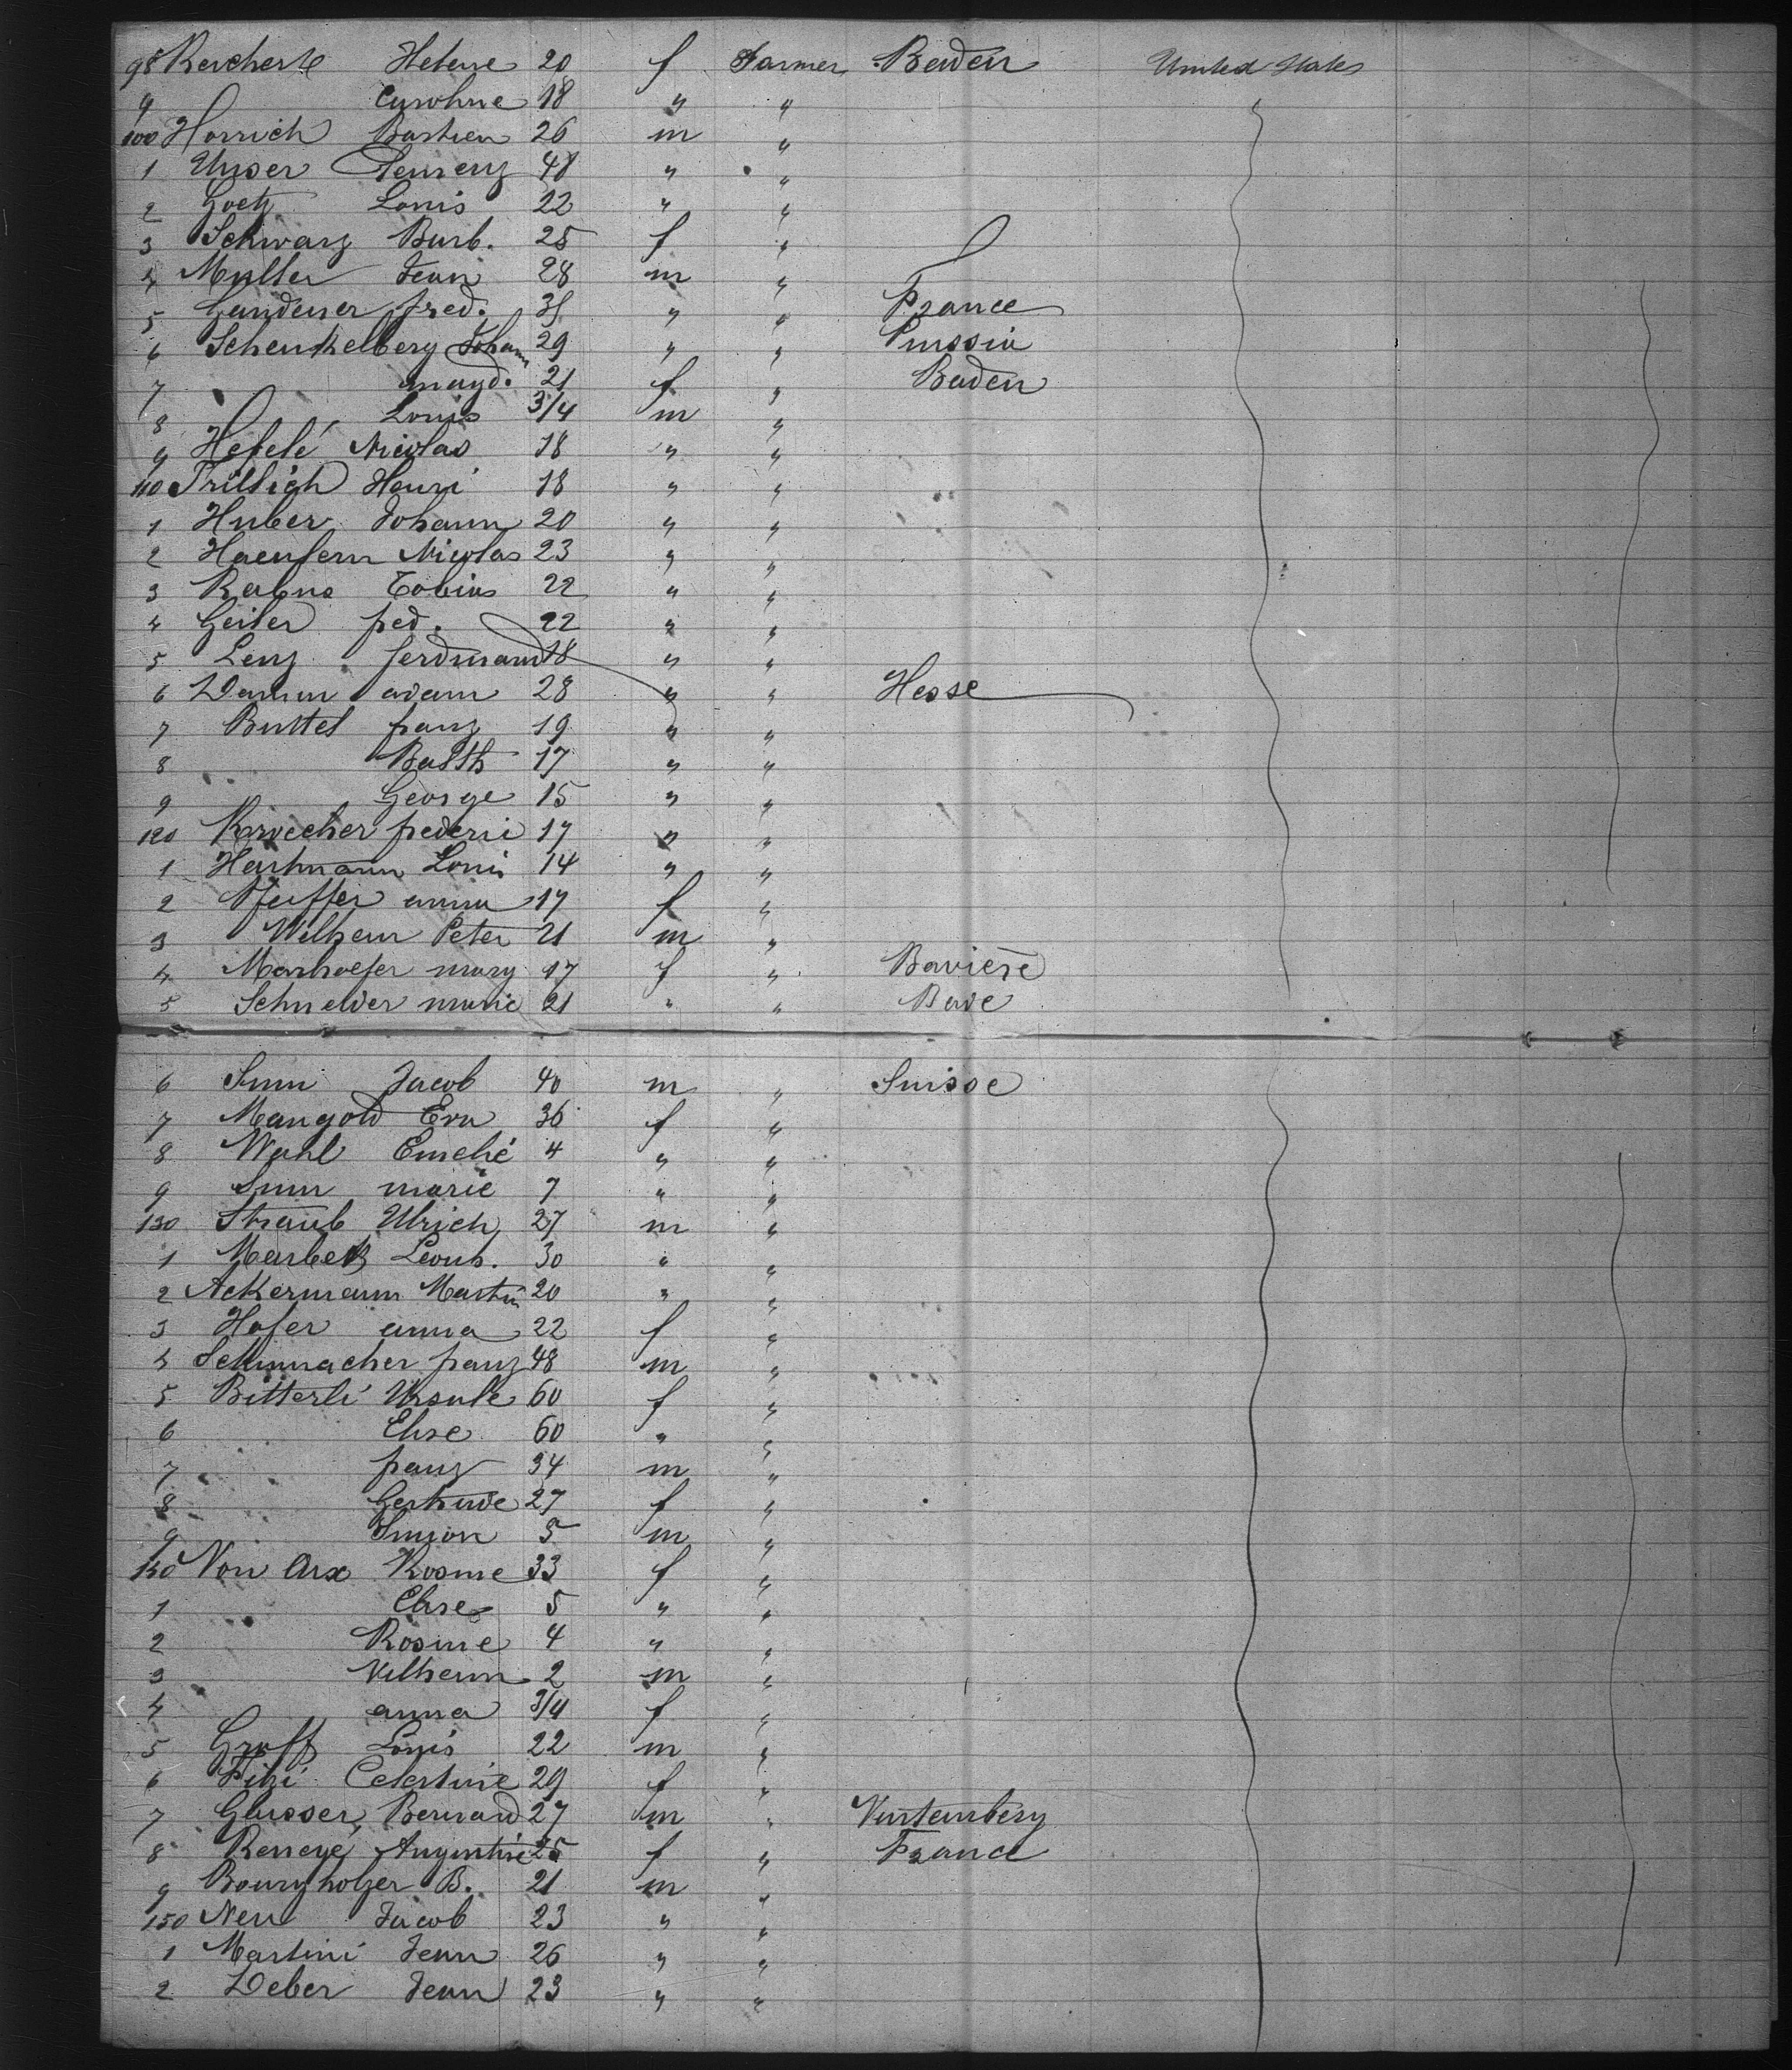 98 Reicherte Helene 20 f Farmer Baden United States
9 Caroline 18 " "
100 Horrich Bastien 26 m "
1 Unser Laurenz 48 " "
2 Goetz Louis 22 " "
3 Schwarz Barb. 25 f "
4 Muller Jean 28 m "
5 Gandener fred. 31 " " France
6 Schenkelberg Johann 29 " " Prussia
7 magd. 21 f " Baden
8 Louis 3/4 m "
9 Hefelé Nicolas 18 " "
110 Trillich Henri 18 " "
1 Huber Johann 20 " "
2 Haenfern Nicolas 23 " "
3 Rabus Tobias 22 " "
4 Geiler fred. 22 " "
5 Lenz ferdinand 18 " "
6 Damm adam 28 " " Hesse
7 Buttel franz 19 " "
8 Balth 17 " "
9 George 15 " "
120 frederic 17 " "
1 Hartmann Louis 14 " "
2 Pfeiffer anna 17 f "
3 Wilhem Peter 21 m "
4 Marhoefer mary 17 f " Bavière
5 Schneider marie 21 " " Bade
6 Jacob 40 m " Suisse
7 Mangold Eva 36 f "
8 Wahl Emelie 4 " "
9 marie 7 " "
130 Straub Ulrich 27 m "
1 Marbek Leonh. 30 " "
2 Ackermann Martin 20 " "
3 Hofer anna 22 f "
4 Schumacher franz 48 m "
5 Bitterli Ursule 60 f "
6 Elise 60 " "
7 franz 34 m "
8 Gertrude 27 f "
9 Simon 5 m "
140 Von Arx Rosine 33 f "
1 Elise 5 " "
2 Rosine 4 " "
3 Wilhem 2 m "
4 anna 3/4 f "
5 Graff Louis 22 m "
6 Celestine 29 f "
7 Glasser Bernard 27 m " Vurtemberg
8 Augustine 25 f " France
9 Bourgholzer B. 21 m "
150 Neu Jacob 23 " "
1 Martini Jean 26 " "
2 Deber Jean 23 " "